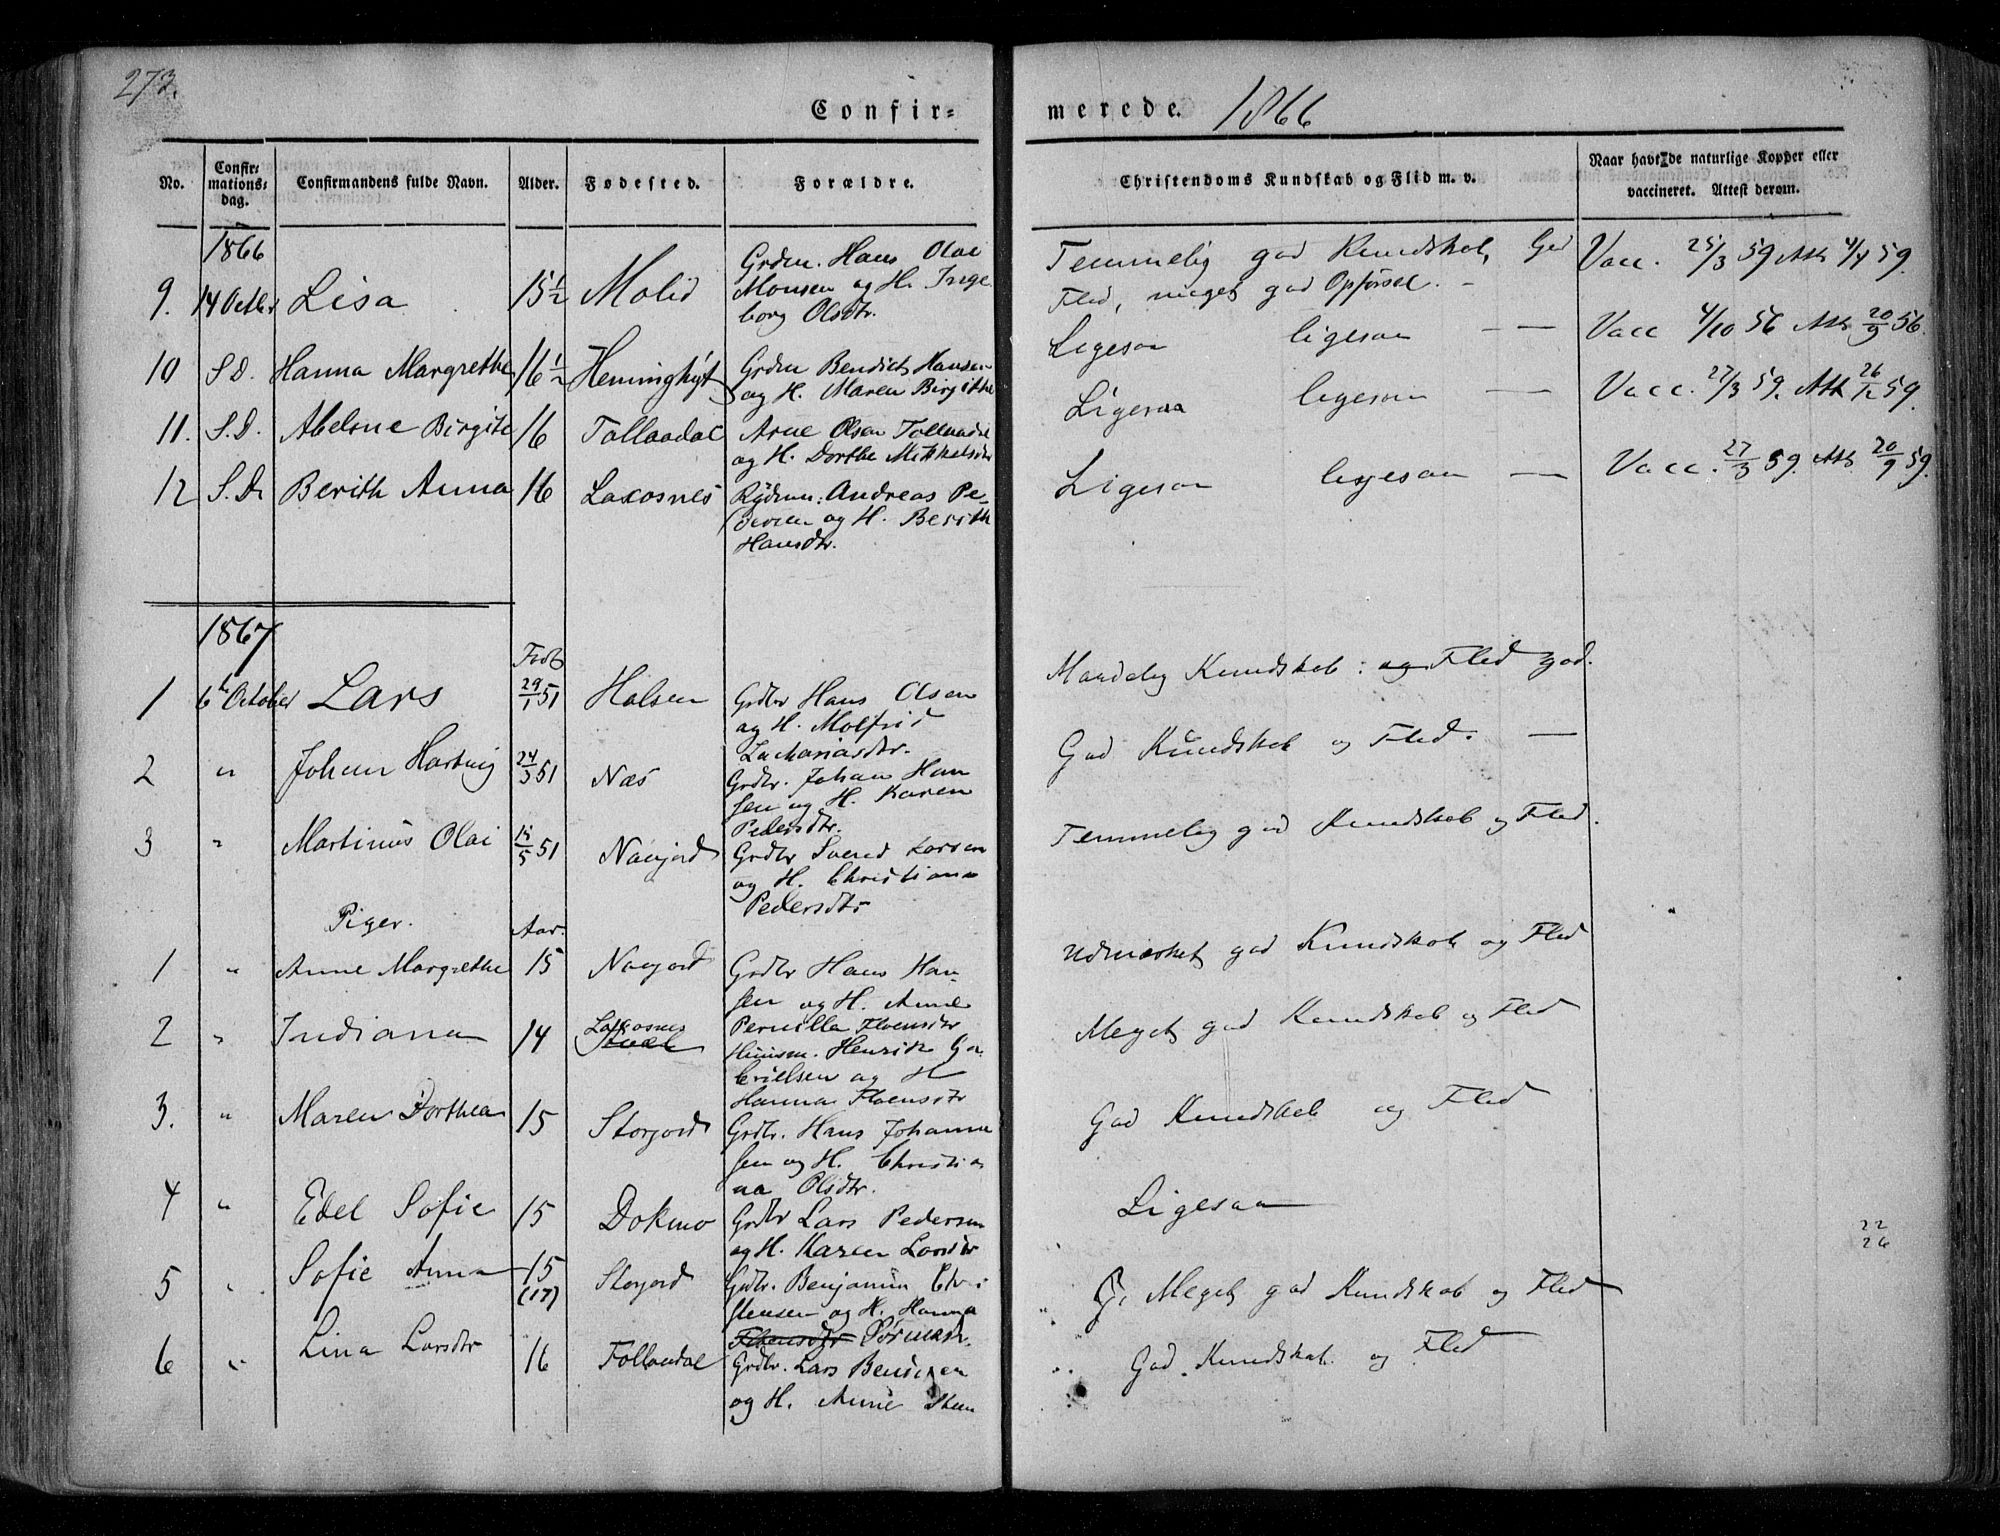 273.
Confir-
merede. 1866
No.
Confir-
mations-
dag.
Confirmandens fulde Navn.
Alder.
Fødested.
Forældre.
Christendoms Kundskab og Flid m. v.
Naar havt de naturlige Kopper eller
vaccineret. Attest derom.
1866
9. 14 Octbr Lisa 15½ Molid
Grdm. Hans Olai
Monsen og H. Inge
borg Olsdtr.
Temmelig god Kundskab, God
Flid, meget god Opførsel. -
Vacc. 25/3 59 Att 4/4 59.
10 S.D. Hanna Margrethe 16½
Grdm Bendict Hansen
og H. Maren Birgitte
Ligesaa ligesaa — —
Vacc 4/10 56 Att 20/9 56.
11. S.D. Abelone Birgite 16 Tollaadal
Arne Olsen Tollaadal
og H. Dorthe Mikkelsdtr
Ligesaa ligesaa — —
Vacc. 27/3 59. Att 26/12 59.
12 S.D. Berith Anna 16 Laxosnes
Rydm: Andreas Pe-
dersen og H. Berith
Hansdtr.
Ligesaa ligesaa —
Vacc. 27/3 59. Att. 20/9 59.
1867
Født
1 6te October Lars 29/1 51 Halsen
Grdbr Hans Olsen
og H. Molfrid
Zachariasdtr.
Maadelig Kundskab: og Flid god.
2 " Johan Hartvig 24/3 51 Næs
Grdbr. Johan Han
sen og H. Karen
Pedersdtr.
God Kundskab og Flid. —
3 " Martinus Olai 51 Navjord
Grdbr Svend Larsen
og H. Christiana
Pedersdtr
Temmelig god Kundskab og Flid.
Piger. Aar.
1 " Anne Margrethe 15 Navjord
Grdbr Hans Han-
sen og H. Anne
Pernilla Floensdtr
Udmærket god Kundskab og Flid
2 " Indiana 14 Laxosnes
Huusm. Henrik Ga-
brielsen og H
Hanna Floensdtr
Meget god Kundskab og Flid
3. " Maren Dorthea 15 Storjord
Grdbr. Hans Johanne
sen og H. Christia
na Olsdtr.
God Kundskab og Flid
4 " Edel Sofie 15 Dokmo
Grdbr Lars Pedersen
og H. Karen Larsdtr
Ligesaa
22
26
5 " Sofie Anna 15
(17) Storjord
Grdbr. Benjamin Chri
stensen og H. Hanna
Floensdtr
Meget god Kundskab og Flid
6 " Lina Larsdtr 16 Tollaadal
Grdbr. Lars Bendixen
og H. Anne
God Kundskab og Flid